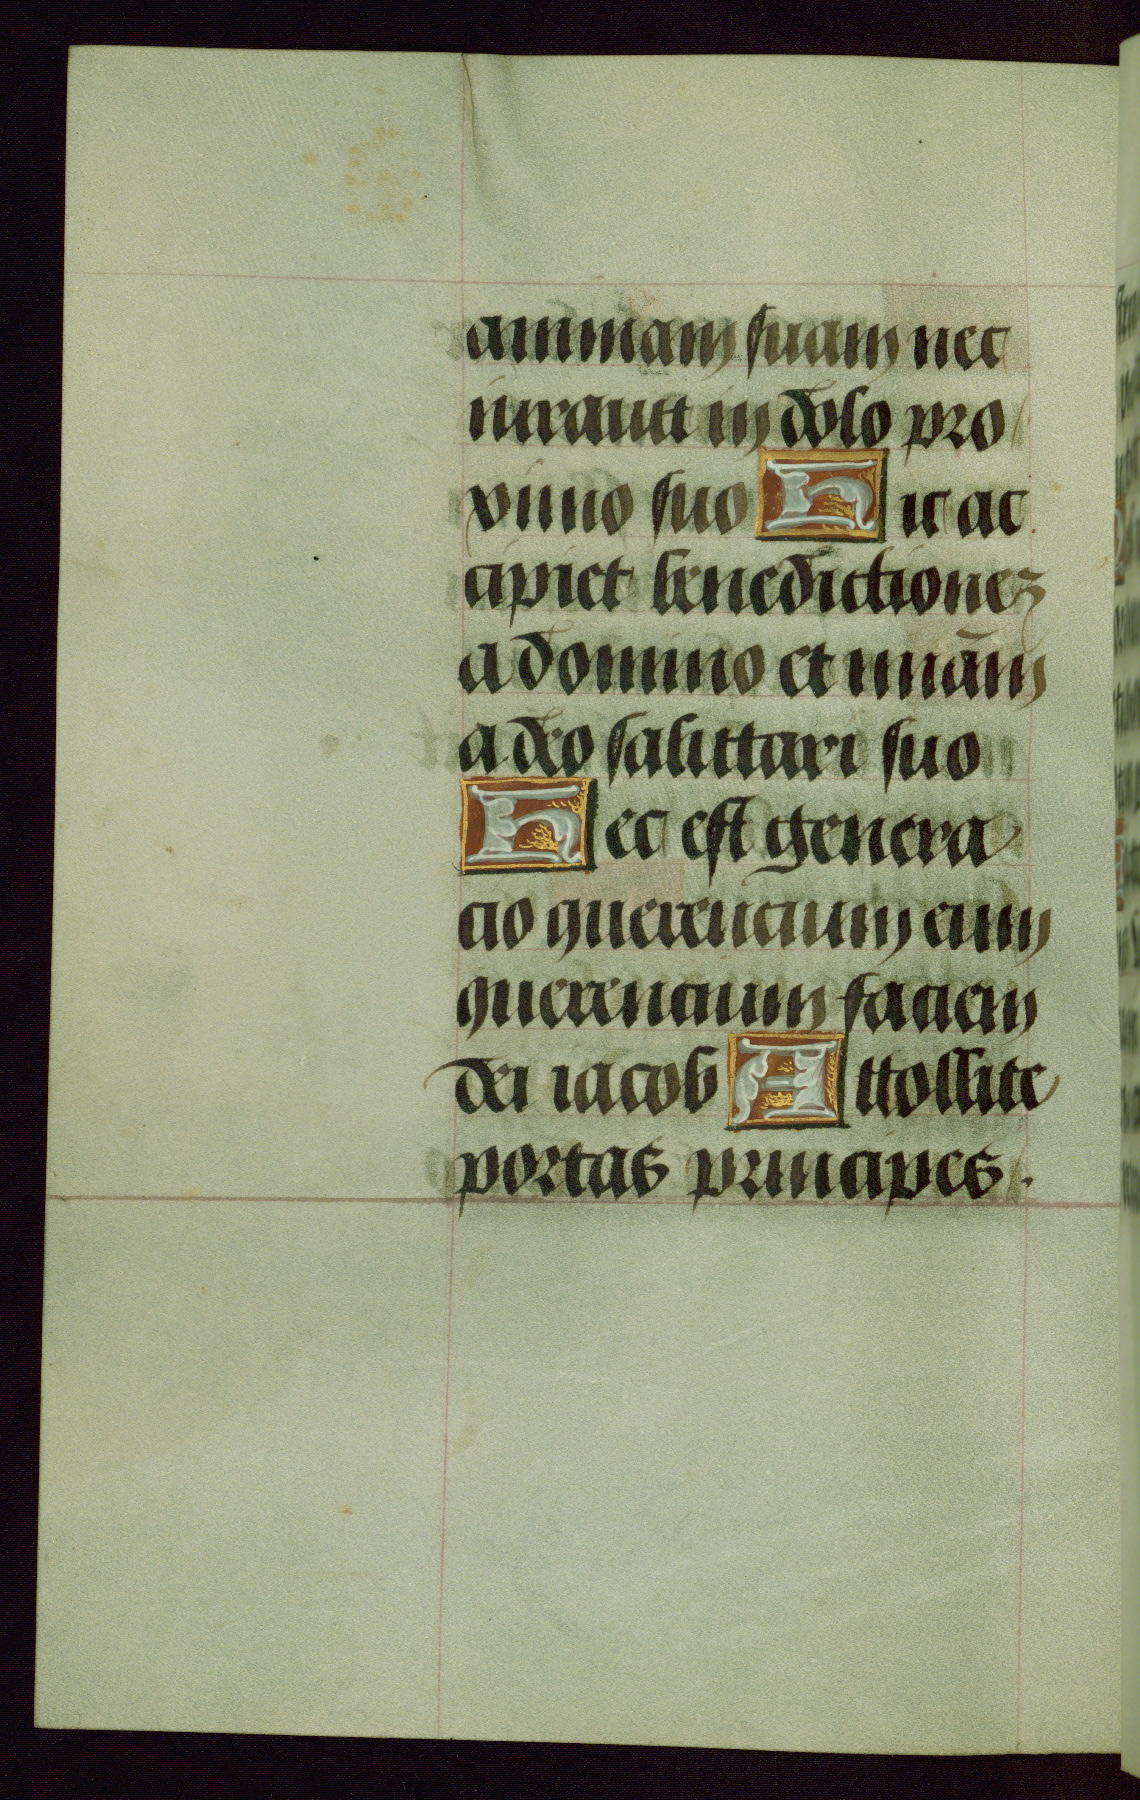 animam suam nec
iurauit in dolo pro
ximo suo Hic ac
cipiet benedictionez
a domino et miãm
a deo salutari suo
Hec est genera
cio querencium eum
querencium faciem
dei iacob Attollite
portas principes.